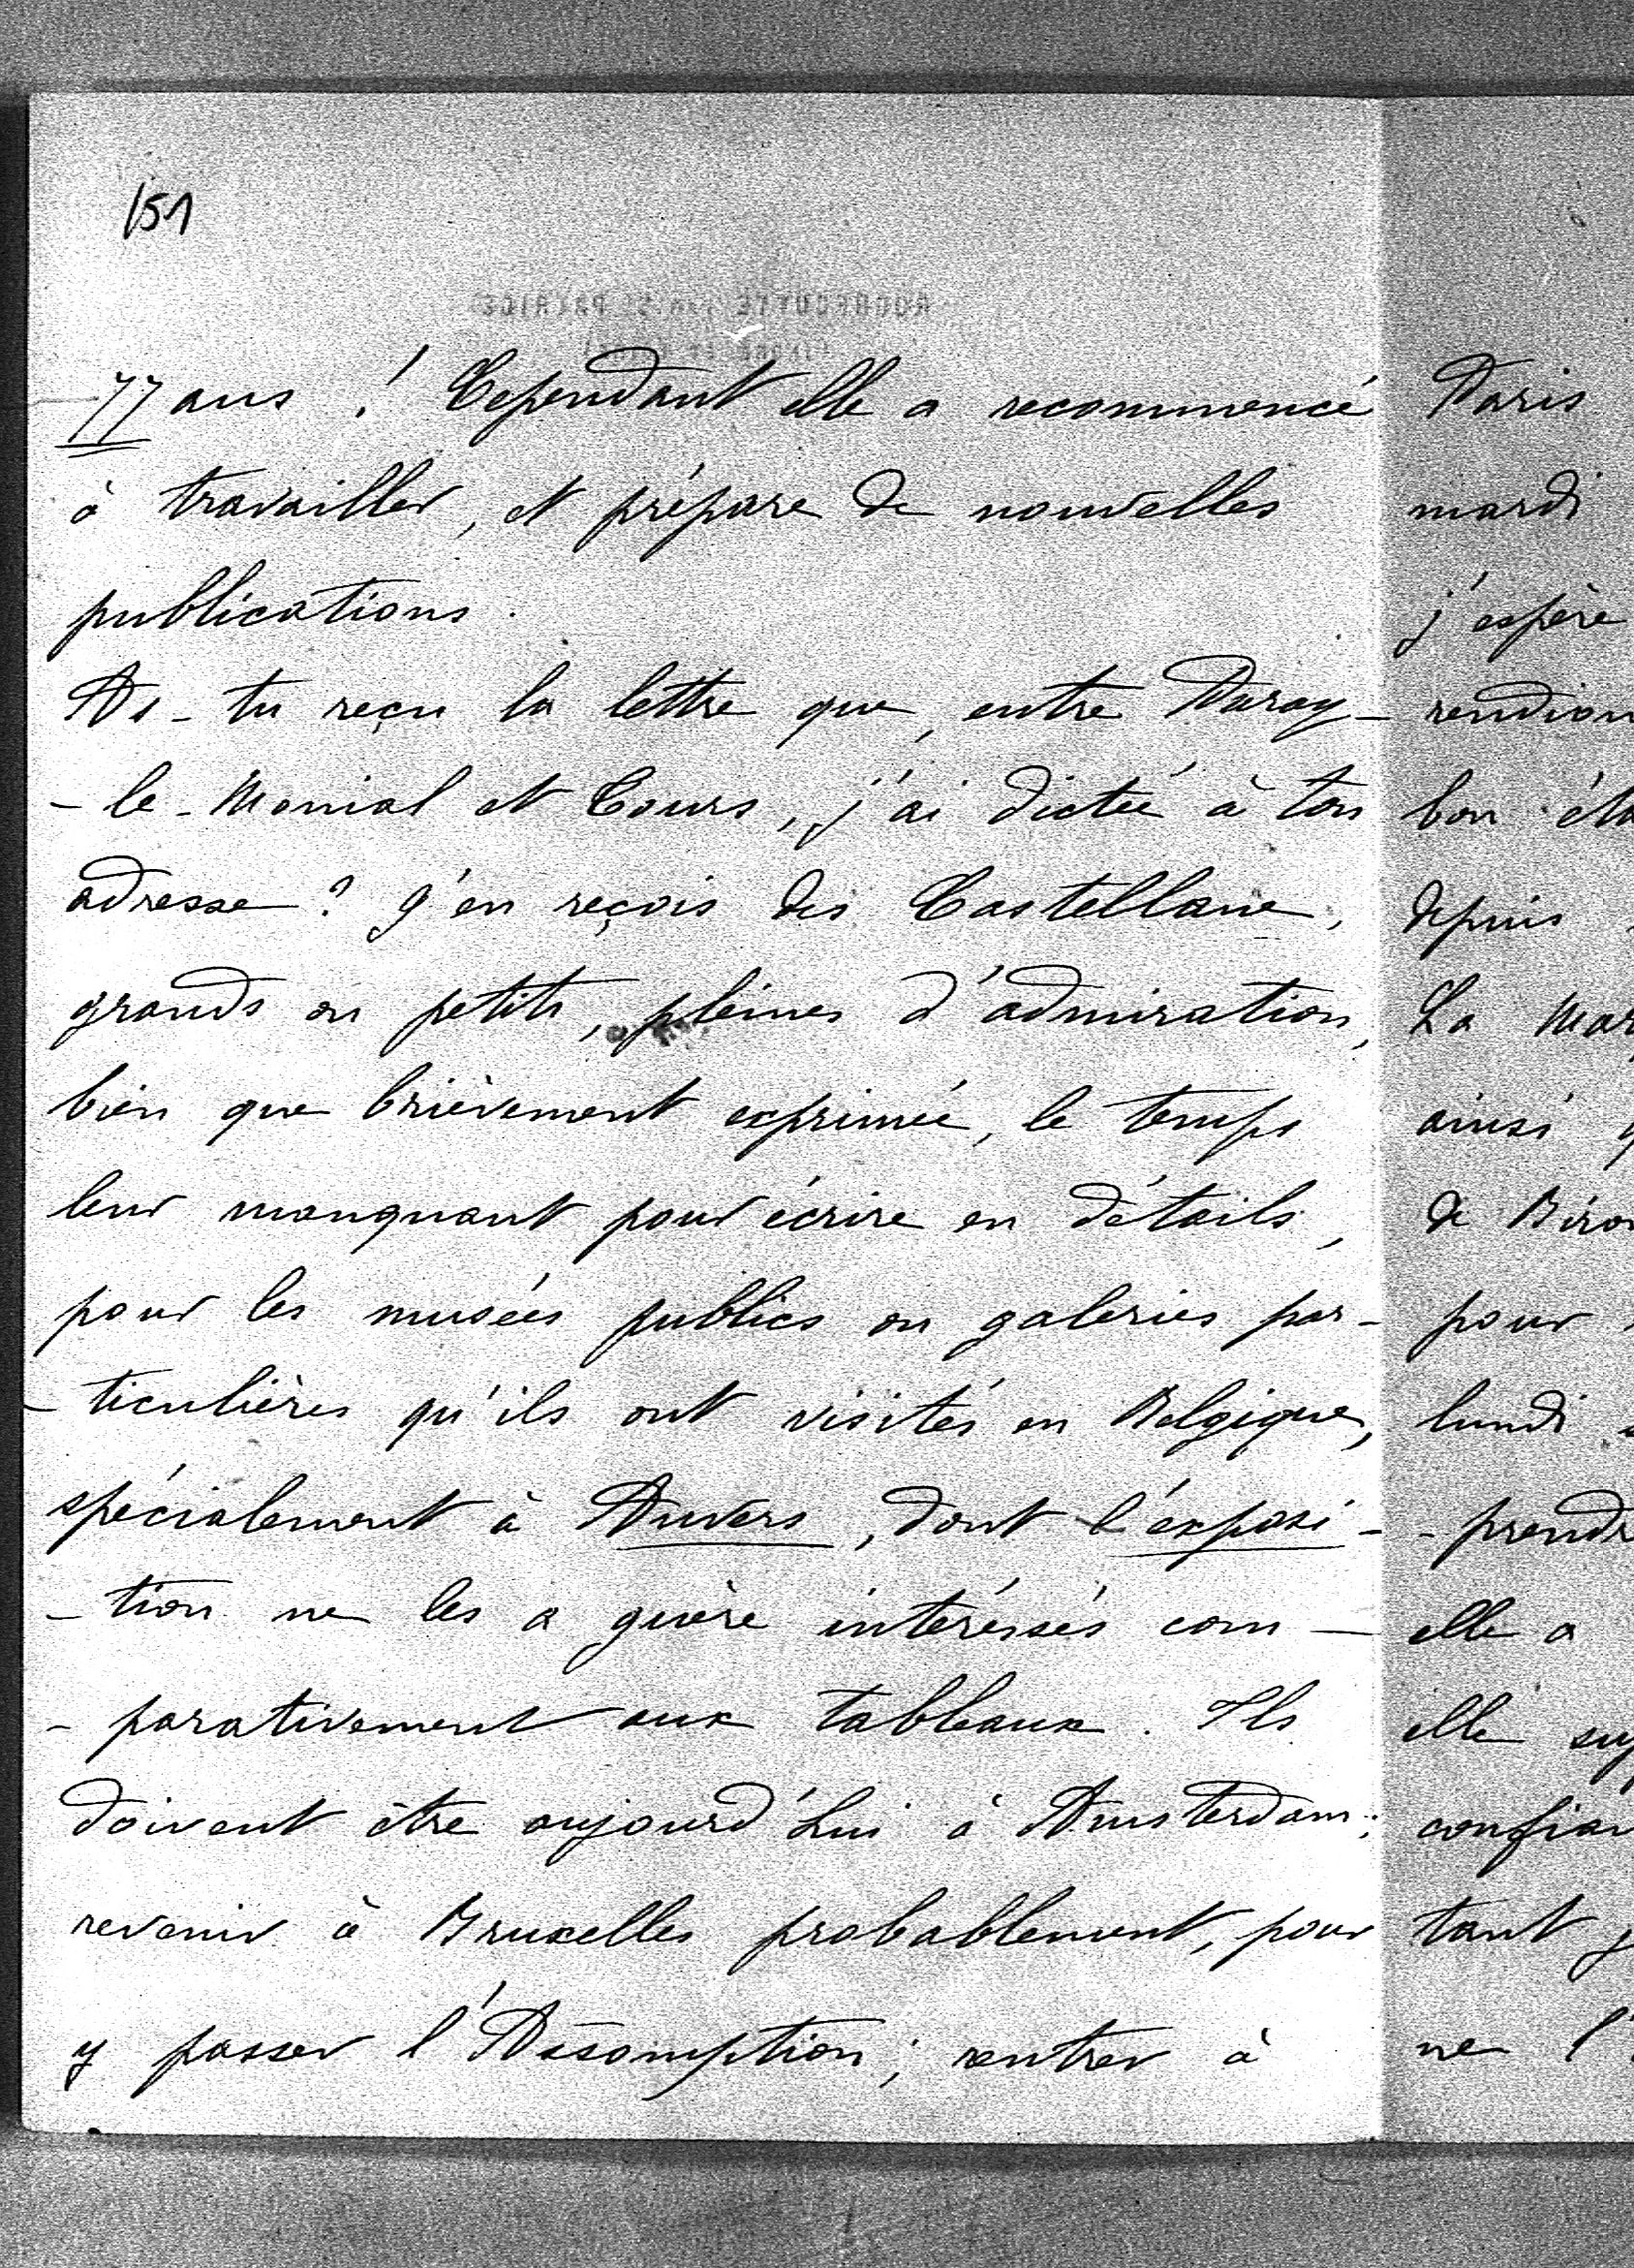 151
77 ans ! Cependant elle a recommencé
à travailler, et prépare de nouvelles
publications.
As-tu reçu la lettre que, entre Paray-
-le-Monial et Tours, j'ai dictée à ton
adresse ? J'en reçois des Castellane,
grands ou petits, pleines d'admiration,
bien que brièvement exprimée, le temps
leur manquant pour écrire en détails,
pour les musées publics ou galeries par-
-ticulières qu'ils ont visités en Belgique,
spécialement à Anvers, dont l'exposi-
-tion ne les a guère intéressés com-
-parativement aux tableaux. Ils
doivent être aujourd'hui à Amsterdam;
revenir à Bruxelles probablement, pour
y passer l'Assomption; rentrer à
Paris
mardi
j'espère
rendion
bon
depuis
La Mar
ainsi
de Biron
pour
lundi
-prendr
elle a
elle
confian
tant
ne l'